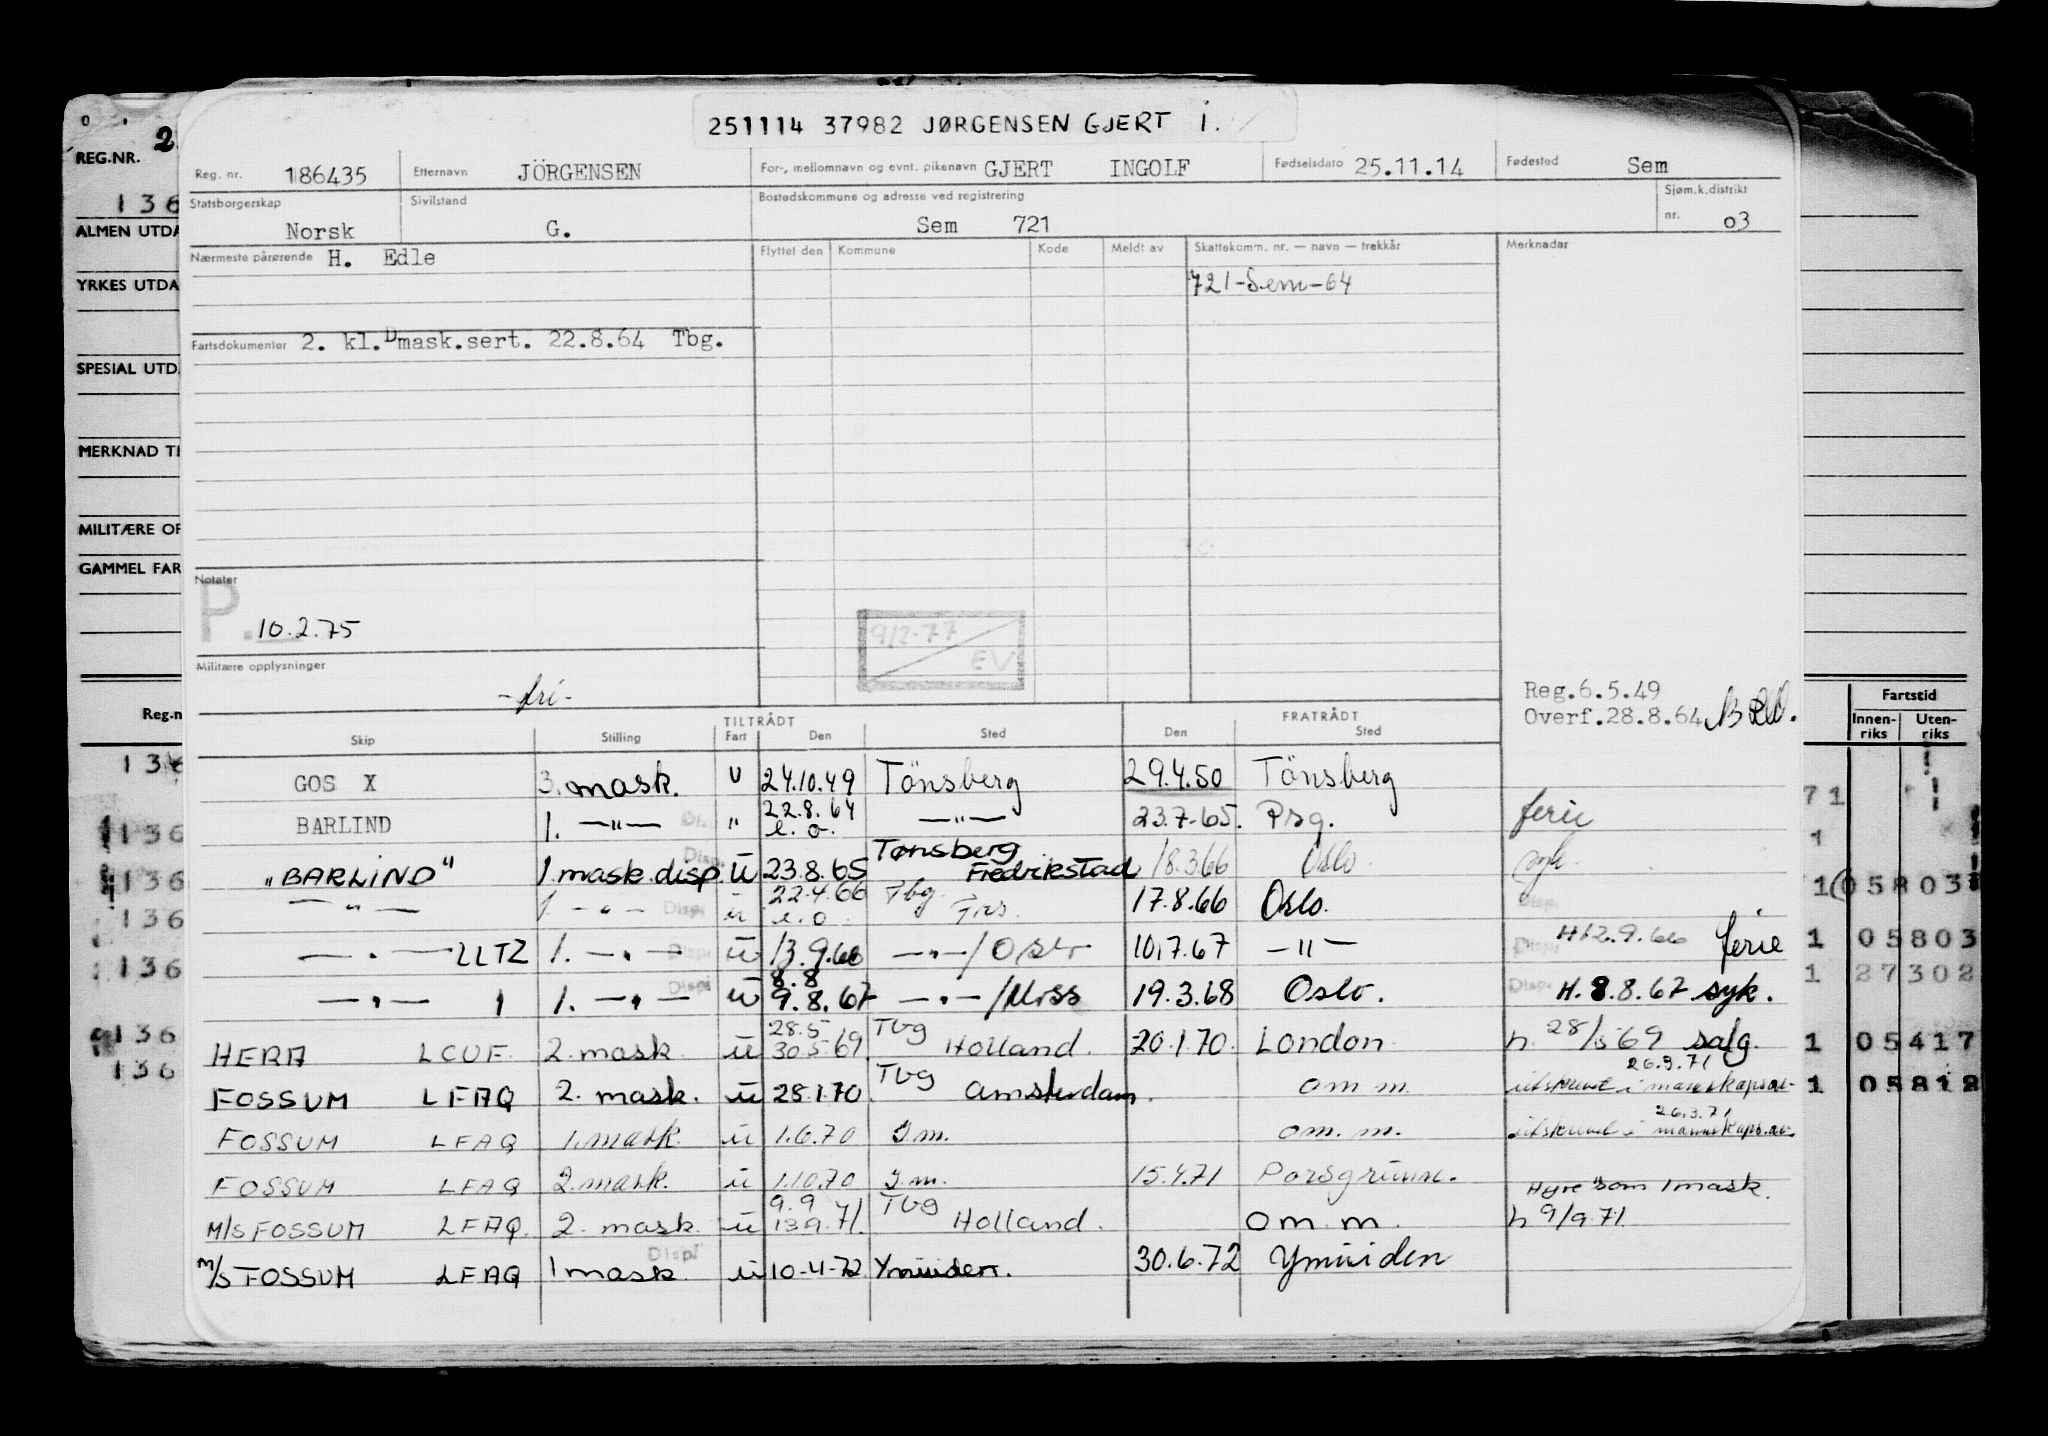 251114 37982 JØRGENSEN GJERT I.
Reg. nr. 186435 Etternavn JÖRGENSEN For-, mellomnavn og evnt. pikenavn GJERT INGOLF Fødselsdato 25.11.14 Fødested Sem
Statsborgerskap Norsk Sivilstand G. Bostedskommune og adresse ved registrering Sem 721 Sjøm.k.distrikt nr. 03
Nærmeste pårørende H. Edle Flyttet den Kommune Kode Meldt av Skattekomm. nr. — navn — trekkår Merknader
721-Sem-64
Fartsdokumenter 2. kl.D mask.sert. 22.8.64 Tbg.
Notater
P. 10.2.75
9/2-77
EV
Militære opplysninger
-fri-
Reg.6.5.49
Overf.28.8.64
TILTRÅDT FRATRÅDT
Skip Stilling Fart Den Sted Den Sted
GOS X 3. mask. U 24.10.49 Tönsberg 29.4.50 Tönsberg
BARLIND 1. —"— Disp. " 22.8.64 e.o. —"— 23.7.65. Prg. ferie
"BARLIND" 1. mask disp. ü 23.8.65 Tønsberg Fredrikstad 18.3.66 Oslo syk.
—"— 1. —"— Disp. ü 22.4.66 e.o. Tbg. 17.8.66 Oslo. Disp.
—"— LLTZ 1. —"— Disp. ü 13.9.66 —"—/Oslo 10.7.67 —"— Disp. H12.9.66 ferie
—"— 1. —"— Disp. ü 8.8 9.8.67 —"—/Moss 19.3.68 Oslo. Disp. H. 8.8.67 syk.
HERA LCUF 2. mask. ü 28.5 30.5.69. Tbg Holland. 20.1.70. London h. 28/5 69 salg.
FOSSUM LFAQ 2. mask. ü 28.1.70 Tbg Amsterdam. om m. 26.3.71 utskrevet i mannskapsav-
FOSSUM LFAQ 1. mask. ü 1.6.70 D.m. om. m. 26.3.71 utskrevet i mannskaps.av.
FOSSUM LFAQ 2. mask. ü 1.10.70 D.m. 15.4.71 Porsgrunn.
M/S FOSSUM LFAQ. 2. mask. ü 9.9 13.9.71. Tbg Holland. om m. Hyre som 1 mask. h 9/9.71.
M/S FOSSUM LFAQ 1 mask. Disp. ü 10-4-72 Ymuiden. 30.6.72 Ymuiden
REG.NR. 2
136
ALMEN UTDA
YRKES UTDA
SPESIAL UTD.
MERKNAD TI
MILITÆRE OP
GAMMEL FAR
Reg.n
136
136
136
136
136
136
136
Fartstid
Innen-riks Uten-riks
71
1
1 05803
1 05803
1 27302
1 05417
1 05812